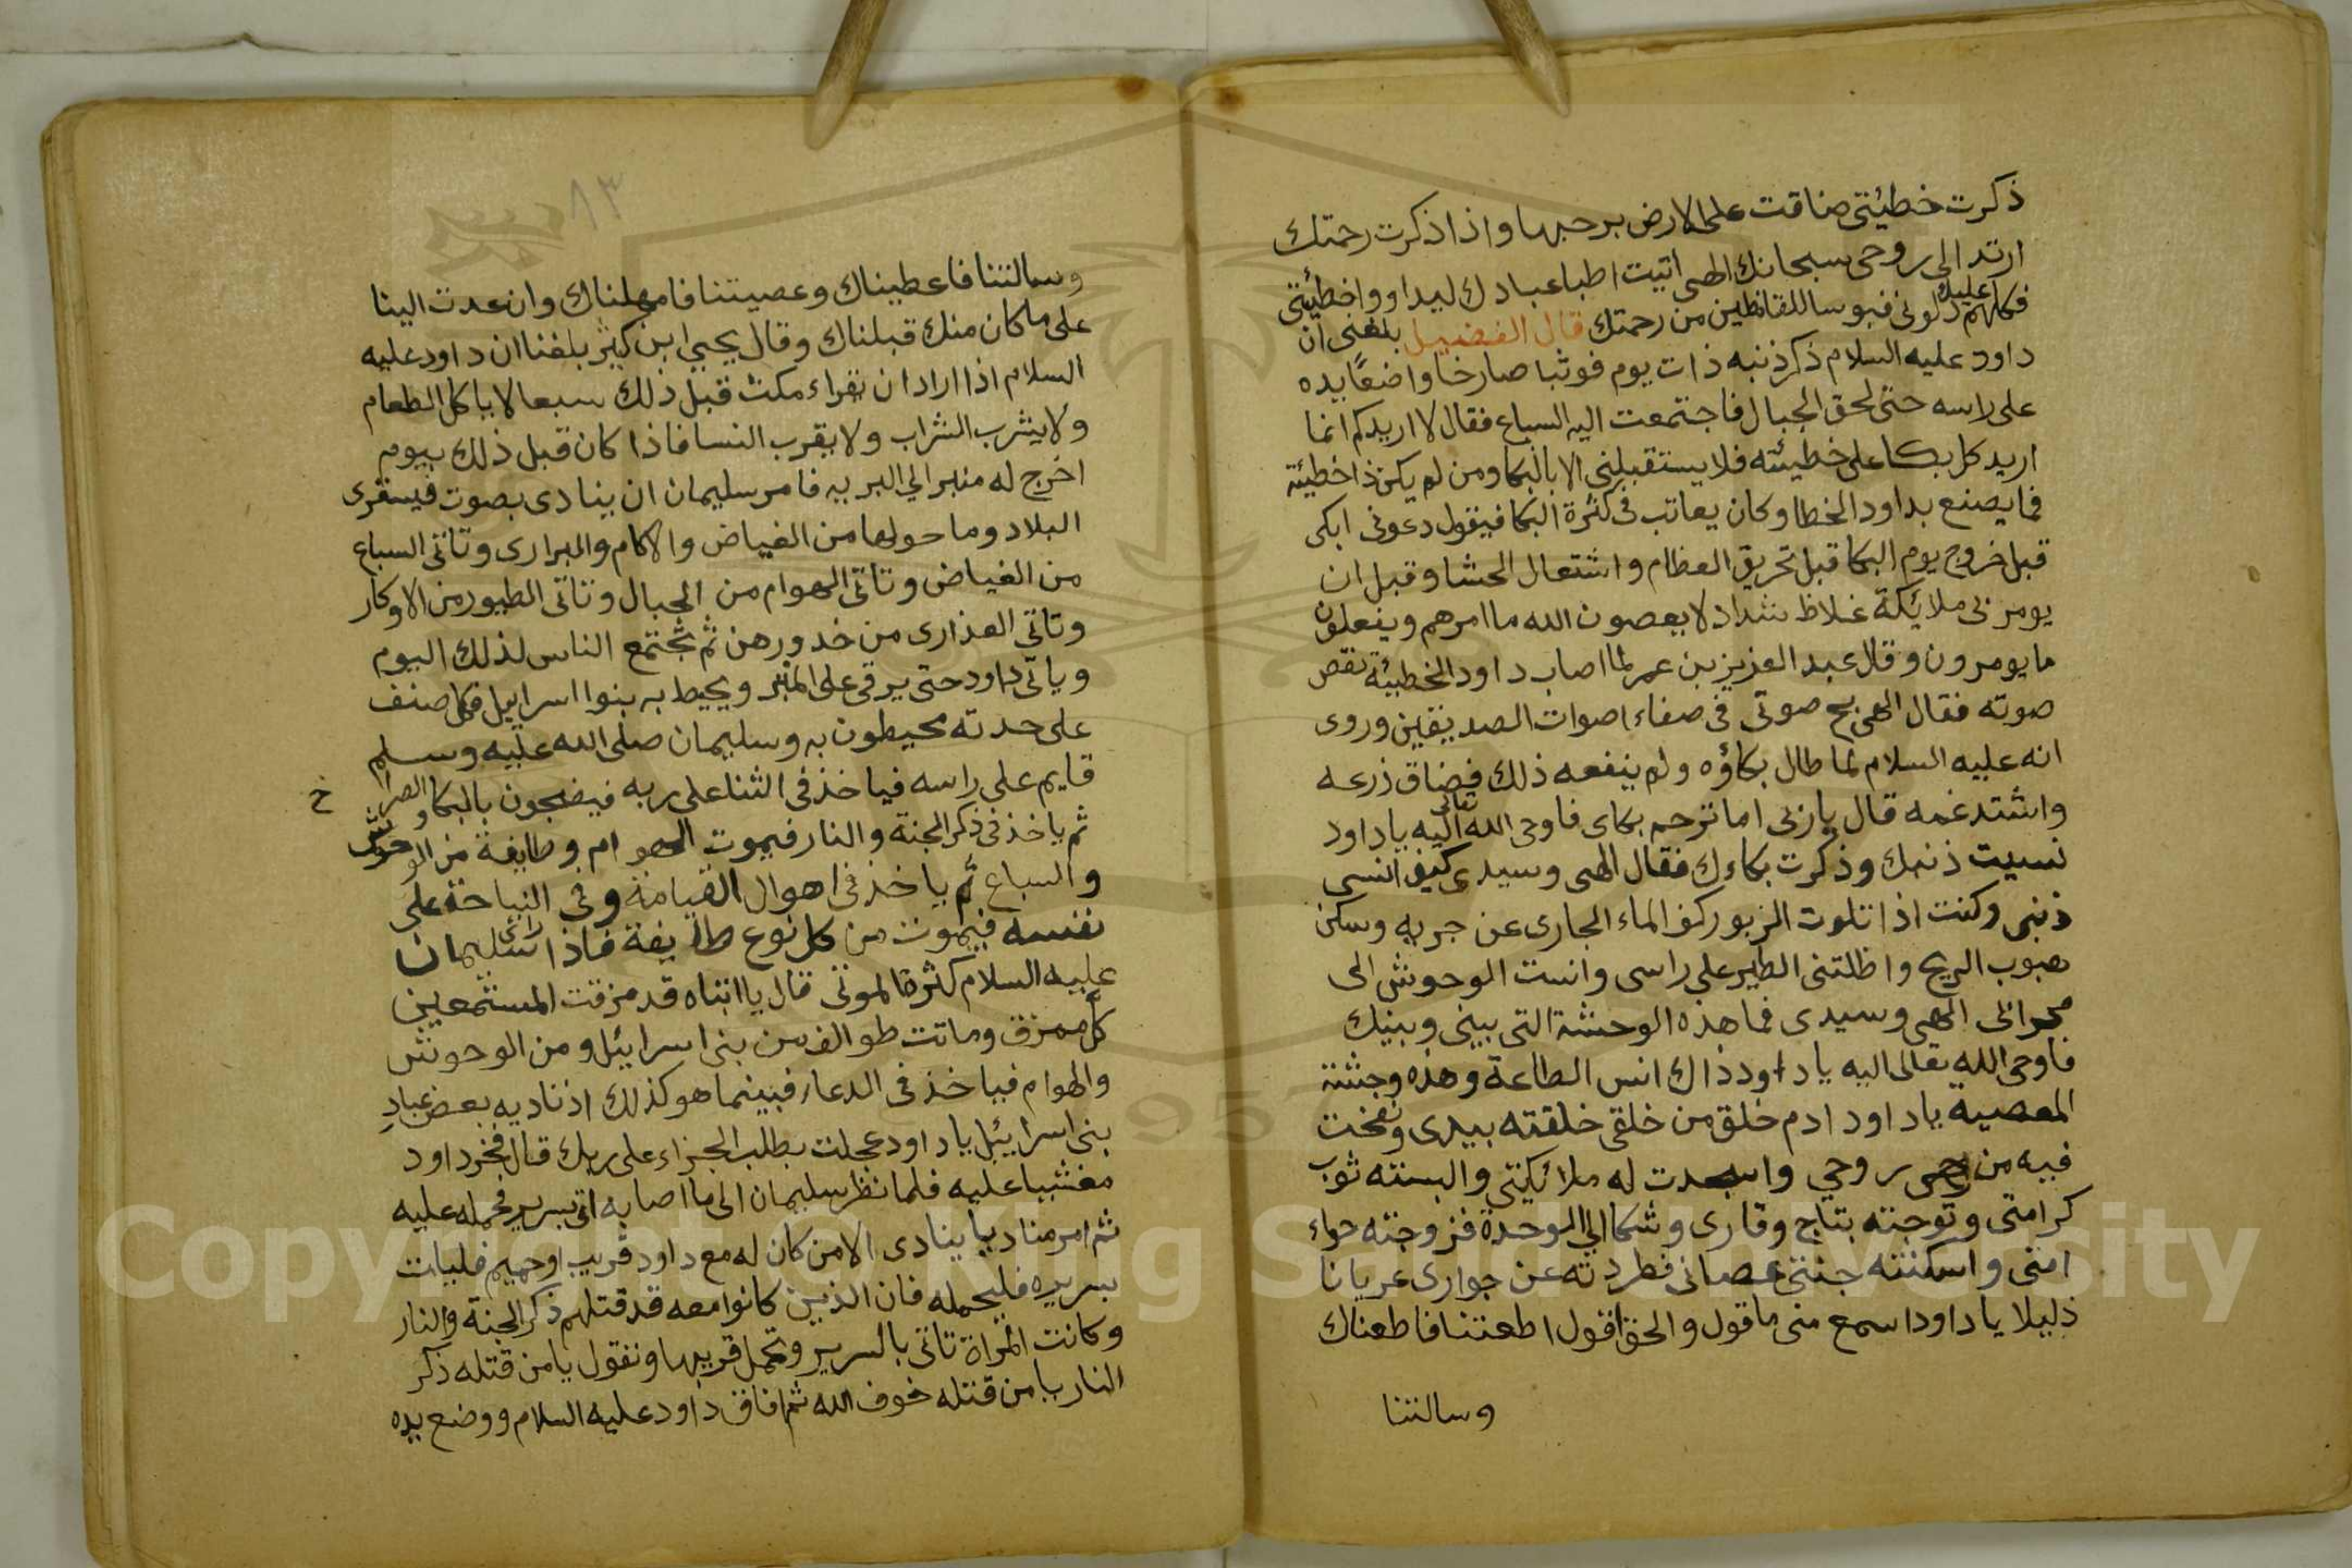 ذكرت خطيئتي ضاقت على الارض برحبها واذا ذكرت رحمتك
ارتد الي روحى سبحانك الهى اتيت اطبا عبادك ليداووا خطيئتي
فكلهم عليك دلونى فبوسا للقانطين من رحمتك قال الفضيل بلغنى ان
داود عليه السلام ذكر ذنبه ذات يوم فوثبا صارخا واضعًا يده
على راسه حتى لحق الجبال فاجتمعت اليه السباع فقال لا اريدكم انما
اريد كل بكا على خطيئته فلا يستقبلنى الا بالبكا ومن لم يكن ذا خطيئة
فما يصنع بداود الخطا وكان يعاتب فى كثرة البكا فيقول دعونى ابكى
قبل خروج يوم البكا قبل تحريق العظام واشتعال الحشا وقبل ان
يومر بى ملايكة غلاظ شداد لا يعصون الله ما امرهم ويفعلون
ما يومرون وقال عبد العزيز بن عمر لما اصاب داود الخطيئة نقص
صوته فقال الهى بح صوتى فى صفاء اصوات الصديقين وروى
انه عليه السلام لما طال بكاؤه ولم ينفعه ذلك فضاق ذرعه
واشتد غمه قال يا ربى اما ترحم بكاى فاوحى الله تعالى اليه يا داود
نسيت ذنبك وذكرت بكاءك فقال الهى وسيدى كيف انسى
ذنبى وكنت اذا تلوت الزبور كف الماء الجارى عن جريه وسكن
هبوب الريح واظلتنى الطير على راسى وانست الوحوش الى
محرابى الهى وسيدى فما هذه الوحشة التى بينى وبينك
فاوحى الله تعالى اليه يا داود ذاك انس الطاعة وهذه وحشة
المعصيه يا داود ادم خلق من خلقى خلقته بيدى ونفخت
فيه من روحي واسجدت له ملائكتى والبسته ثوب
كرامتى وتوجته بتاج وقارى وشكا الي الوحدة فزوجته حواء
امتى واسكنته جنتى عصانى فطردته عن جوارى عريانا
ذليلا يا داود اسمع منى ما قول والحق اقول اطعتنا فاطعناك
وسالتنا
٨٣
وسالتنا فاعطيناك وعصيتنا فامهلناك وان عدت الينا
على ما كان منك قبلناك وقال يحيي ابن كثير بلغنا ان داود عليه
السلام اذا اراد ان يقراء مكث قبل ذلك سبعا لا ياكل الطعام
ولا يشرب الشراب ولا يقرب النسا فاذا كان قبل ذلك بيوم
اخرج له منبر الي البريه فامر سليمان ان ينادى بصوت فيستقرى
البلاد وما حولها من الغياض والاكام والبرارى وتاتى السباع
من الغياض وتاتى الهوام من الجبال وتاتى الطيور من الاوكار
وتاتي العذارى من خدورهن ثم تجتمع الناس لذلك اليوم
وياتى داود حتى يرقى على المنبر ويحيط به بنوا اسراييل فكل صنف
على حدته محيطون به وسليمان صلى الله عليه وسلم
قايم على راسه فياخذ فى الثنا على ربه فيضجون بالبكا والصراخ
ثم ياخذ فى ذكر الجنة والنار فيموت الهوام وطايفة من الوحوش
والسباع ثم ياخذ فى اهوال القيامة وفى النياحة على
نفسه فيموت من كل نوع طايفة فاذا راى سليمان
عليه السلام كثرة الموتى قال يا ابتاه قد مزقت المستمعين
كل ممزق وماتت طوائف من بنى اسراييل ومن الوحوش
والهوام فياخذ فى الدعاء فبينما هو كذلك اذ ناديه بعض عبادِ
بنى اسراييل يا داود عجلت بطلب الجزاء على ربك قال فخر داود
مغشيا عليه فلما نظر سليمان الى ما اصابه اتى بسرير فحمله عليه
ثم امر مناديا ينادى الا من كان له مع داود قريب او حميم فليات
بسريره فليحمله فان الذين كانوا معه قد قتلهم ذكر الجنة والنار
وكانت المراة تاتى بالسرير وتحمل قريبها وتقول يا من قتله ذكر
النار يا من قتله خوف الله ثم افاق داود عليه السلام ووضع يده
Copyright © King Saud University
1957